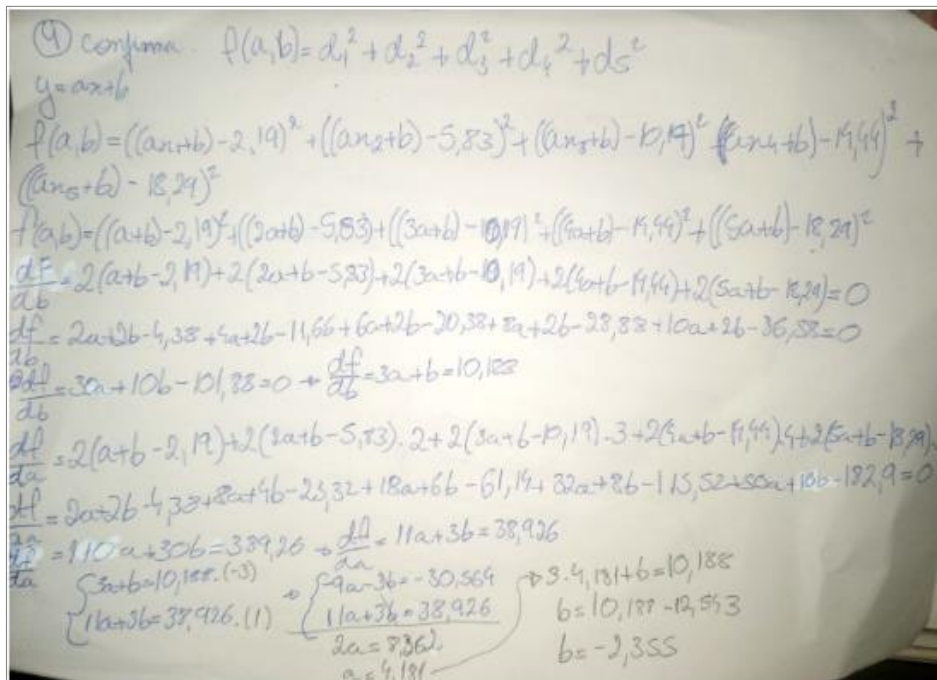 ④ Confirma. f(a,b) = d₁² + d₂² + d₃² + d₄² + d₅²
y = ax+b
f(a,b) = ((ax₁+b) - 2,19)² + ((ax₂+b) - 5,83)² + ((ax₃+b) - 10,19)² ((ax₄+b) - 14,44)² +
((ax₅+b) - 18,29)²
f(a,b) = ((a+b) - 2,19)² + ((2a+b) - 5,83) + ((3a+b) - 10,19)² + ((4a+b) - 14,44)² + ((5a+b) - 18,29)²
df/db = 2(a+b-2,19) + 2(2a+b-5,83) + 2(3a+b-10,19) + 2(4a+b-14,44) + 2(5a+b-18,29) = 0
df/db = 2a+2b-4,38+4a+2b-11,66+6a+2b-20,38+8a+2b-28,88+10a+2b-36,58=0
df/db = 30a+10b-101,88=0 → df/db = 3a+b=10,188
df/da = 2(a+b-2,19)+2(2a+b-5,83).2+2(3a+b-10,19).3+2(4a+b-14,44).4+2(5a+b-18,29).
df/da = 2a+2b-4,38+8a+4b-23,32+18a+6b-61,14+32a+8b-115,52+50a+10b-182,9=0
df/da = 110a+30b=389,26 → df/da = 11a+3b=38,926
{3a+b=10,188.(-3) → {-9a-3b=-30,564 → 3.4,181+b=10,188
{11a+3b=38,926.(1) 11a+3b=38,926 b=10,188-12,543
2a=8,362 b=-2,355
a=4,181